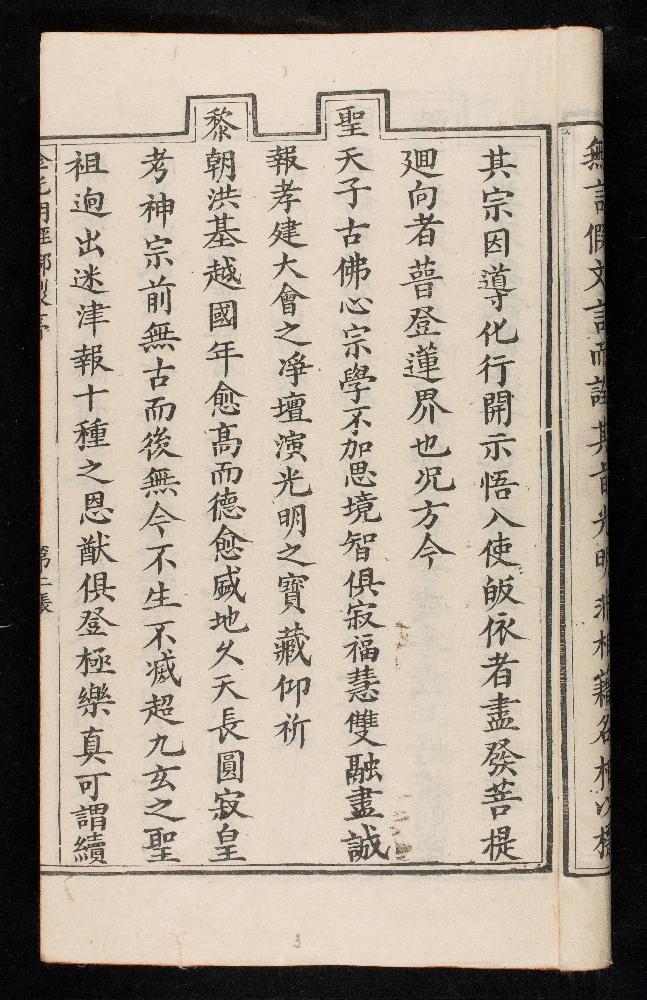 無言假文言而詮其旨光明非相籍名相以標
其宗因導化行開示悟入使皈依者盡發菩提
廻向者普登蓮界也况方今
聖天子古佛心宗學不加思境智俱寂福慧雙融盡誠
報孝建大會之淨壇演光明之寶藏仰祈
黎朝洪基越國年愈高而德愈盛地久天長圓寂皇
考神宗前無古而後無今不生不滅超九玄之聖
祖逈出迷津報十種之恩猷俱登極樂真可謂續
第二張
3